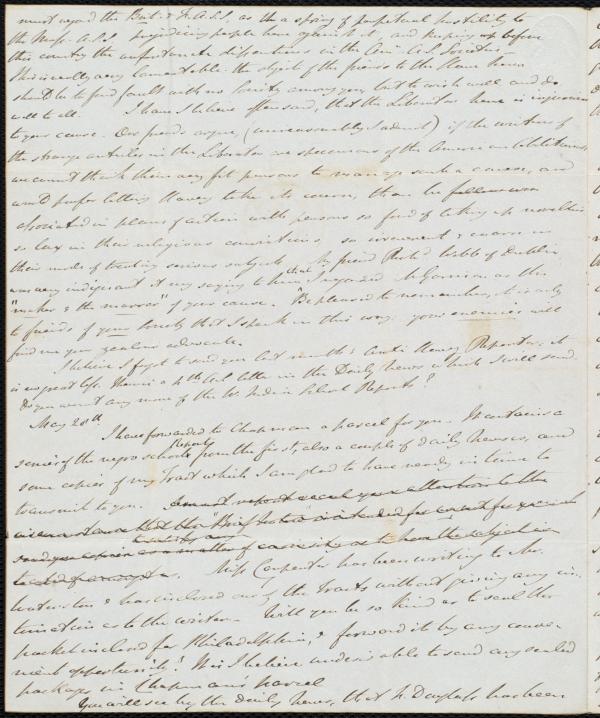 must regard the Brit & F. A.S.S. as the a spring of perpetual hostility to
the Mass. A.S.S. prejudicing people here against it, and keeping up before
this country the unfortunate dispositions in the Amn A.S. Societies.
This is really very lamentable: the object of the friends to the Slave here
should be to find fault with no Society among you, but to wish well and do
well to all. I have I believe often said, that the Liberator here is injurious
to your cause. Our friends argue, (unreasonably I admit) if the writers of
the strange articles in the Liberator are specimens of the American Abolitionists,
we cannot think them very fit persons to manage such a cause, and
would prefer letting Slavery take its course, than be fellow
associated in plans of action with persons so fond of taking up novelties
so lax in their religious convictions, so irreverent & coarse in
their mode of treating serious subjects. My friend Richd Webb of Dublin
was very indignant at my saying to him that I regarded Mr Garrison as the
"maker & the marrer" of your cause. Be pleased to remember, it is only
to friends of your Society that I speak in this way: your enemies will
find me your zealous advocate.
I believe I forgot to send you last month's Anti Slavery Reporter; it
is no great loss. There is a 4th A.S. letter in the Daily News which I will send.
Do you want any more of the W. India School Reports?
May 28th
I have forwarded to Chapman a parcel for you. It contains a
series of the negro school Reports from the first, also a couple of daily newses, and
some copies of my Tract which I am glad to have ready in time to
transmit to you. I must not call your attention to the
circumstance that the "Brief Notice" is intended for
send you copies as a matter of curiosity as to how the subject is
Miss Carpenter has been writing to Mr
Waterston & has inclosed one of the Tracts without giving any in-
timation as to the writer. Will you be so kind as to seal the
packet inclosed for Philadelphia, & forward it by any conve-
nient opportunity? It is I believe undesirable to send any sealed
packages in Chapman's parcel
You will see by the daily news, that F. Douglass has been